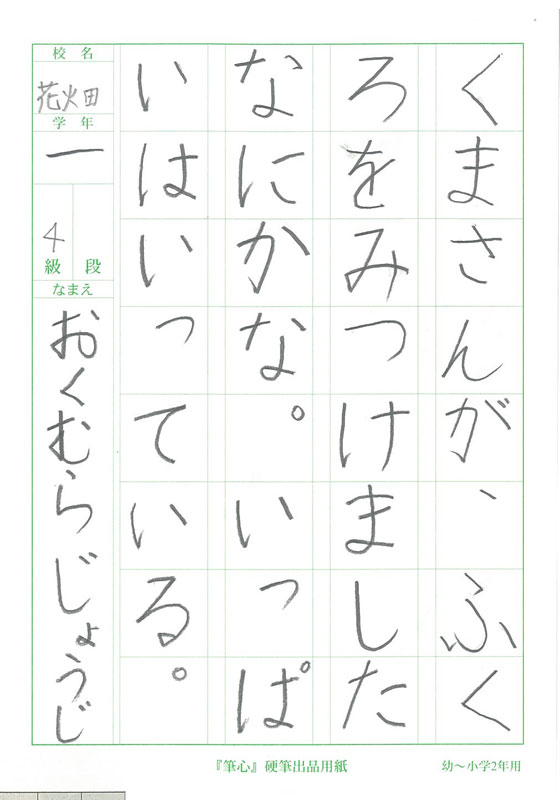 くまさんが、ふく
ろをみつけました
なにかな。いっぱ
いはいっている。
校名
花畑
学年
一
4
級 段
なまえ
おくむらじょうじ
『筆心』硬筆出品用紙
幼～小学2年用